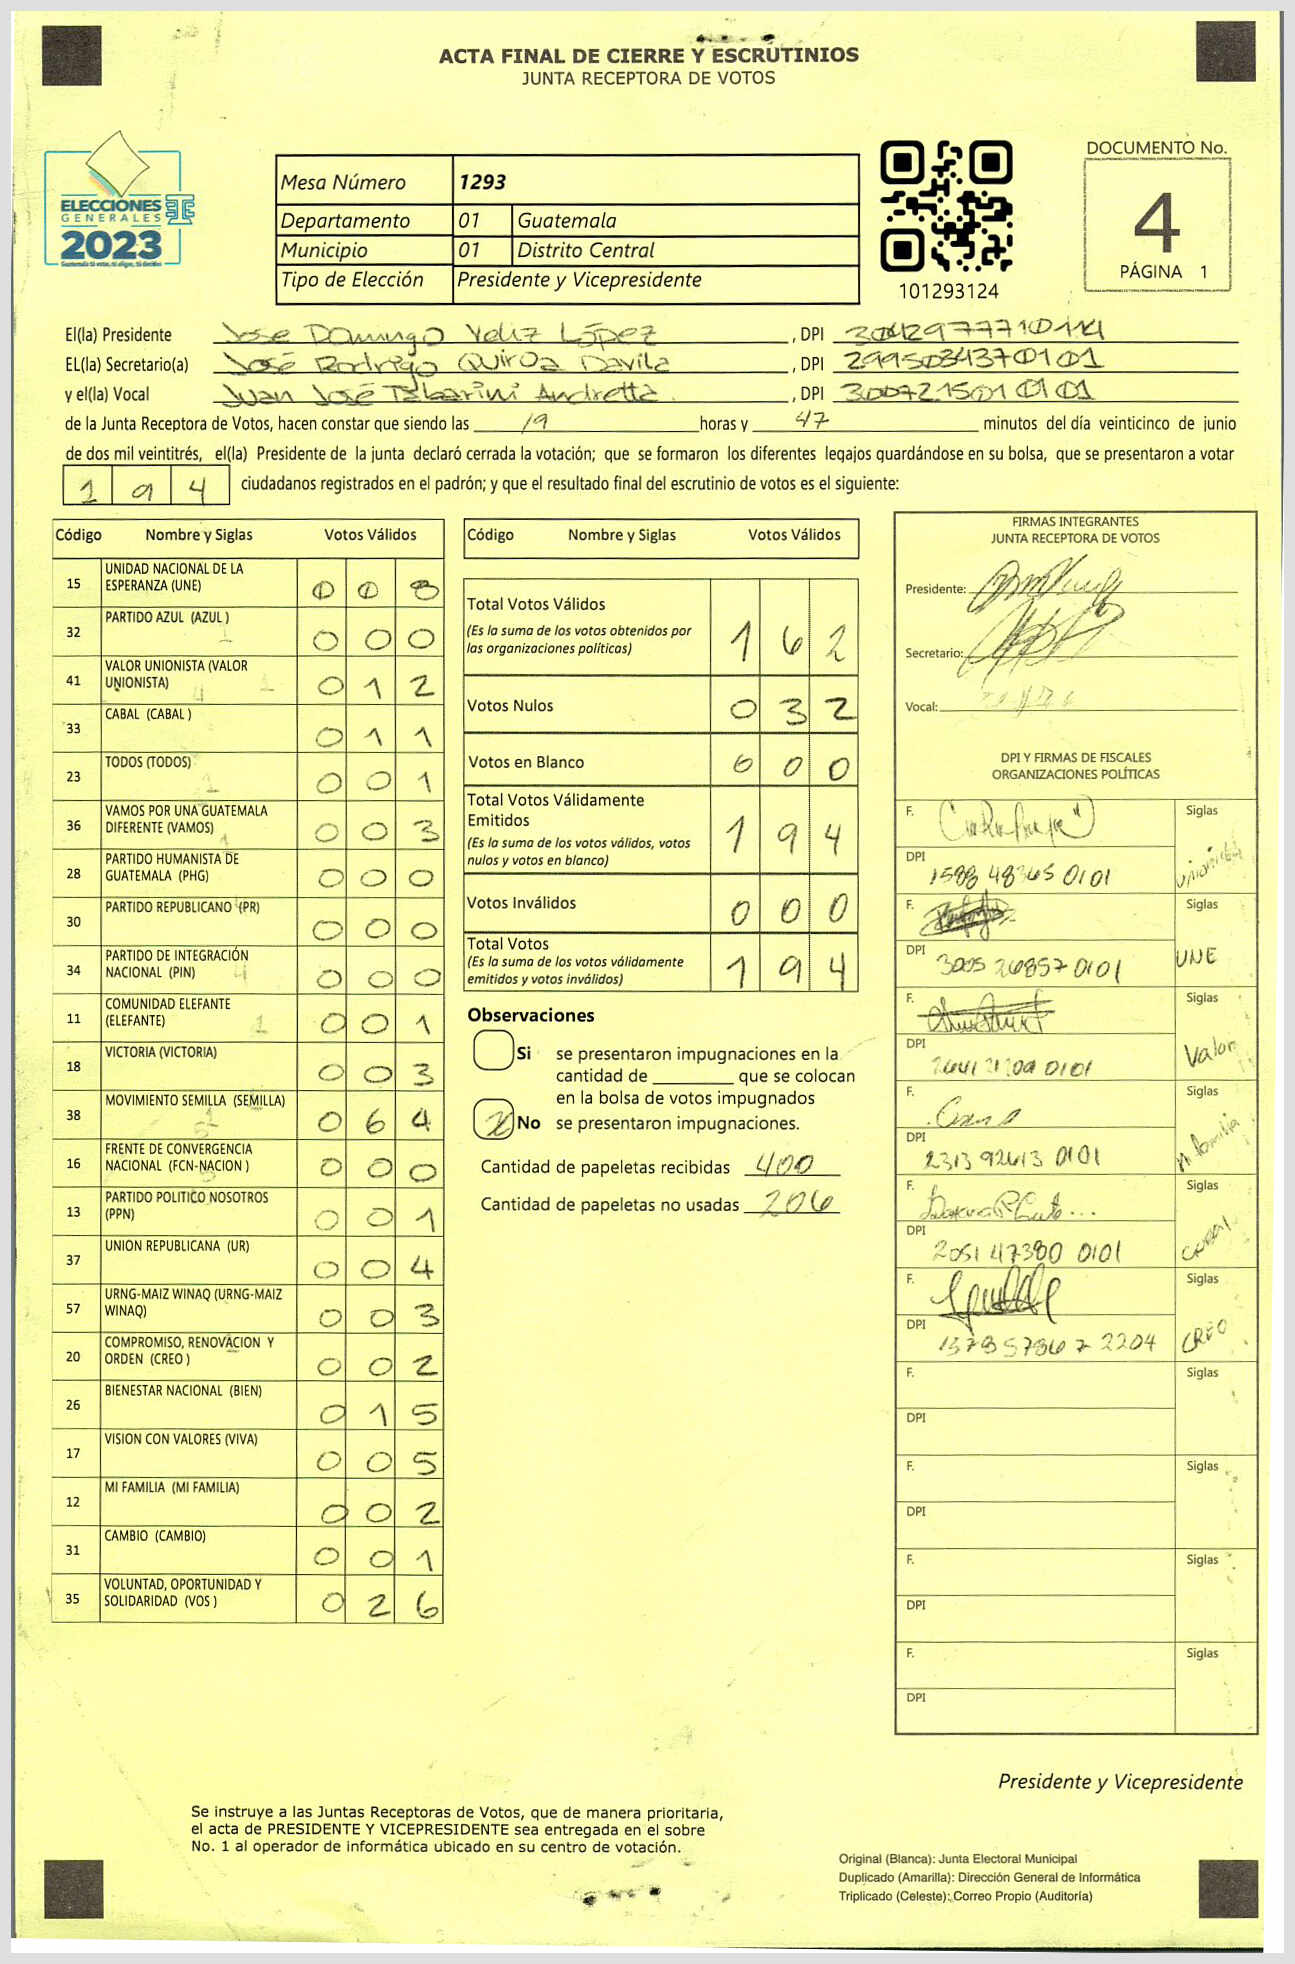 ACTA FINAL DE CIERRE Y ESCRUTINIOS
JUNTA RECEPTORA DE VOTOS
ELECCIONES
GENERALES
2023
Mesa Número 1293
Departamento 01 Guatemala
Municipio 01 Distrito Central
Tipo de Elección Presidente y Vicepresidente
101293124
DOCUMENTO No.
4
PÁGINA 1
El(la) Presidente Jose Domingo Veliz López, DPI
EL(la) Secretario(a) José Rodrigo Quiroa Davila, DPI 299503437 0101
y el(la) Vocal Juan José Andretta, DPI 300721501 0101
de la Junta Receptora de Votos, hacen constar que siendo las 19 horas y 47 minutos del día veinticinco de junio
de dos mil veintitrés, el(la) Presidente de la junta declaró cerrada la votación; que se formaron los diferentes legajos guardándose en su bolsa, que se presentaron a votar
194 ciudadanos registrados en el padrón; y que el resultado final del escrutinio de votos es el siguiente:
Código Nombre y Siglas Votos Válidos
15 UNIDAD NACIONAL DE LA
ESPERANZA (UNE) 0 0 8
32 PARTIDO AZUL (AZUL ) 0 0 0
41 VALOR UNIONISTA (VALOR
UNIONISTA) 0 1 2
33 CABAL (CABAL ) 0 1 1
23 TODOS (TODOS) 0 0 1
36 VAMOS POR UNA GUATEMALA
DIFERENTE (VAMOS) 0 0 3
28 PARTIDO HUMANISTA DE
GUATEMALA (PHG) 0 0 0
30 PARTIDO REPUBLICANO (PR) 0 0 0
34 PARTIDO DE INTEGRACIÓN
NACIONAL (PIN) 0 0 0
11 COMUNIDAD ELEFANTE
(ELEFANTE) 0 0 1
18 VICTORIA (VICTORIA) 0 0 3
38 MOVIMIENTO SEMILLA (SEMILLA) 0 6 4
16 FRENTE DE CONVERGENCIA
NACIONAL (FCN-NACION ) 0 0 0
13 PARTIDO POLITICO NOSOTROS
(PPN) 0 0 1
37 UNION REPUBLICANA (UR) 0 0 4
57 URNG-MAIZ WINAQ (URNG-MAIZ
WINAQ) 0 0 3
20 COMPROMISO, RENOVACION Y
ORDEN (CREO ) 0 0 2
26 BIENESTAR NACIONAL (BIEN) 0 1 5
17 VISION CON VALORES (VIVA) 0 0 5
12 MI FAMILIA (MI FAMILIA) 0 0 2
31 CAMBIO (CAMBIO) 0 0 1
35 VOLUNTAD, OPORTUNIDAD Y
SOLIDARIDAD (VOS ) 0 2 6
Código Nombre y Siglas Votos Válidos
Total Votos Válidos
(Es la suma de los votos obtenidos por
las organizaciones políticas) 1 6 2
Votos Nulos 0 3 2
Votos en Blanco 0 0 0
Total Votos Válidamente
Emitidos
(Es la suma de los votos válidos, votos
nulos y votos en blanco) 1 9 4
Votos Inválidos 0 0 0
Total Votos
(Es la suma de los votos válidamente
emitidos y votos inválidos) 1 9 4
Observaciones
Si se presentaron impugnaciones en la
cantidad de ________ que se colocan
en la bolsa de votos impugnados
X No se presentaron impugnaciones.
Cantidad de papeletas recibidas 400
Cantidad de papeletas no usadas 206
FIRMAS INTEGRANTES
JUNTA RECEPTORA DE VOTOS
Presidente:
Secretario:
Vocal:
DPI Y FIRMAS DE FISCALES
ORGANIZACIONES POLÍTICAS
F. Siglas
DPI 0101 Unionista
F. Siglas
DPI 3005 26857 0101 UNE
F. Siglas
DPI 0101 Valor
F. Siglas
DPI 2313 92613 0101 Mi familia
F. Siglas
DPI 2051 47380 0101 CABAL
F. Siglas
DPI 2204 CREO
F. Siglas
DPI
F. Siglas
DPI
F. Siglas
DPI
F. Siglas
DPI
Presidente y Vicepresidente
Se instruye a las Juntas Receptoras de Votos, que de manera prioritaria,
el acta de PRESIDENTE Y VICEPRESIDENTE sea entregada en el sobre
No. 1 al operador de informática ubicado en su centro de votación.
Original (Blanca): Junta Electoral Municipal
Duplicado (Amarilla): Dirección General de Informática
Triplicado (Celeste): Correo Propio (Auditoría)